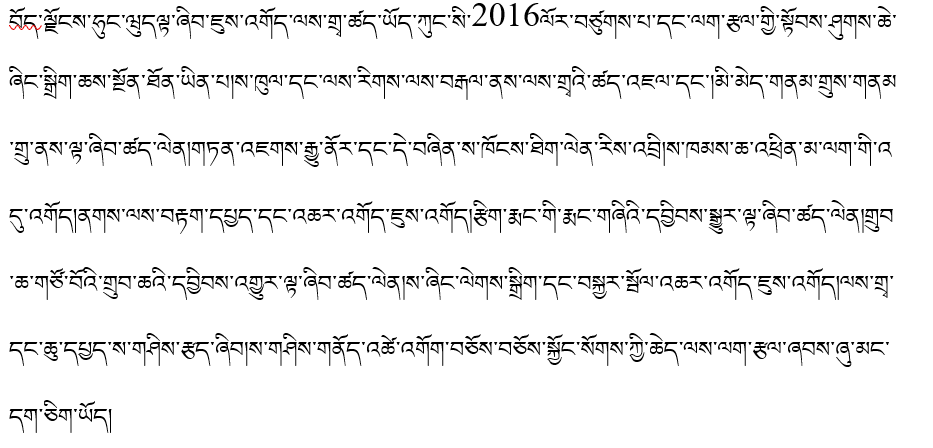 བོད་ལྗོངས་ཧུང་ཝུད་ལྟ་ཞིབ་ཇུས་འགོད་ལས་གྲྭ་ཚད་ཡོད་ཀུང་སི་2016ལོར་བཙུགས་པ་དང་ལག་རྩལ་གྱི་སྟོབས་ཤུགས་ཆེ་
ཞིང་སྒྲིག་ཆས་སྔོན་ཐོན་ཡིན་པ།ས་ཁུལ་དང་ལས་རིགས་ལས་བརྒལ་ནས་ལས་གྲྭའི་ཚད་འཇལ་དང་།མི་མེད་གནམ་གྲུས་གནམ
་གྲུ་ནས་ལྟ་ཞིབ་ཚད་ལེན།གཏན་འཇགས་རྒྱུ་ནོར་དང་དེ་བཞིན་ས་ཁོངས་ཐིག་ལེན་རིས་འབྲི།ས་ཁམས་ཆ་འཕྲིན་མ་ལག་གི་འ
དུ་འགོད།ནགས་ལས་བརྟག་དཔྱད་དང་འཆར་འགོད་ཇུས་འགོད།རྩིག་རྨང་གི་རྨང་གཞིའི་དབྱིབས་སྒྱུར་ལྟ་ཞིབ་ཚད་ལེན།གྲུབ
་ཆ་གཙོ་བོའི་གྲུབ་ཆའི་དབྱིབས་འགྱུར་ལྟ་ཞིབ་ཚད་ལེན།ས་ཞིང་ལེགས་སྒྲིག་དང་བསྐྱར་སྤོལ་འཆར་འགོད་ཇུས་འགོད།ལས་གྲྭ་
དང་ཆུ་དཔྱད་ས་གཤིས་རྩད་ཞིབ།ས་གཤིས་གནོད་འཚེ་འགོག་བཅོས་བཅོས་སྐྱོང་སོགས་ཀྱི་ཆེད་ལས་ལག་རྩལ་ཞབས་ཞུ་མང་
དག་ཅིག་ཡོད།